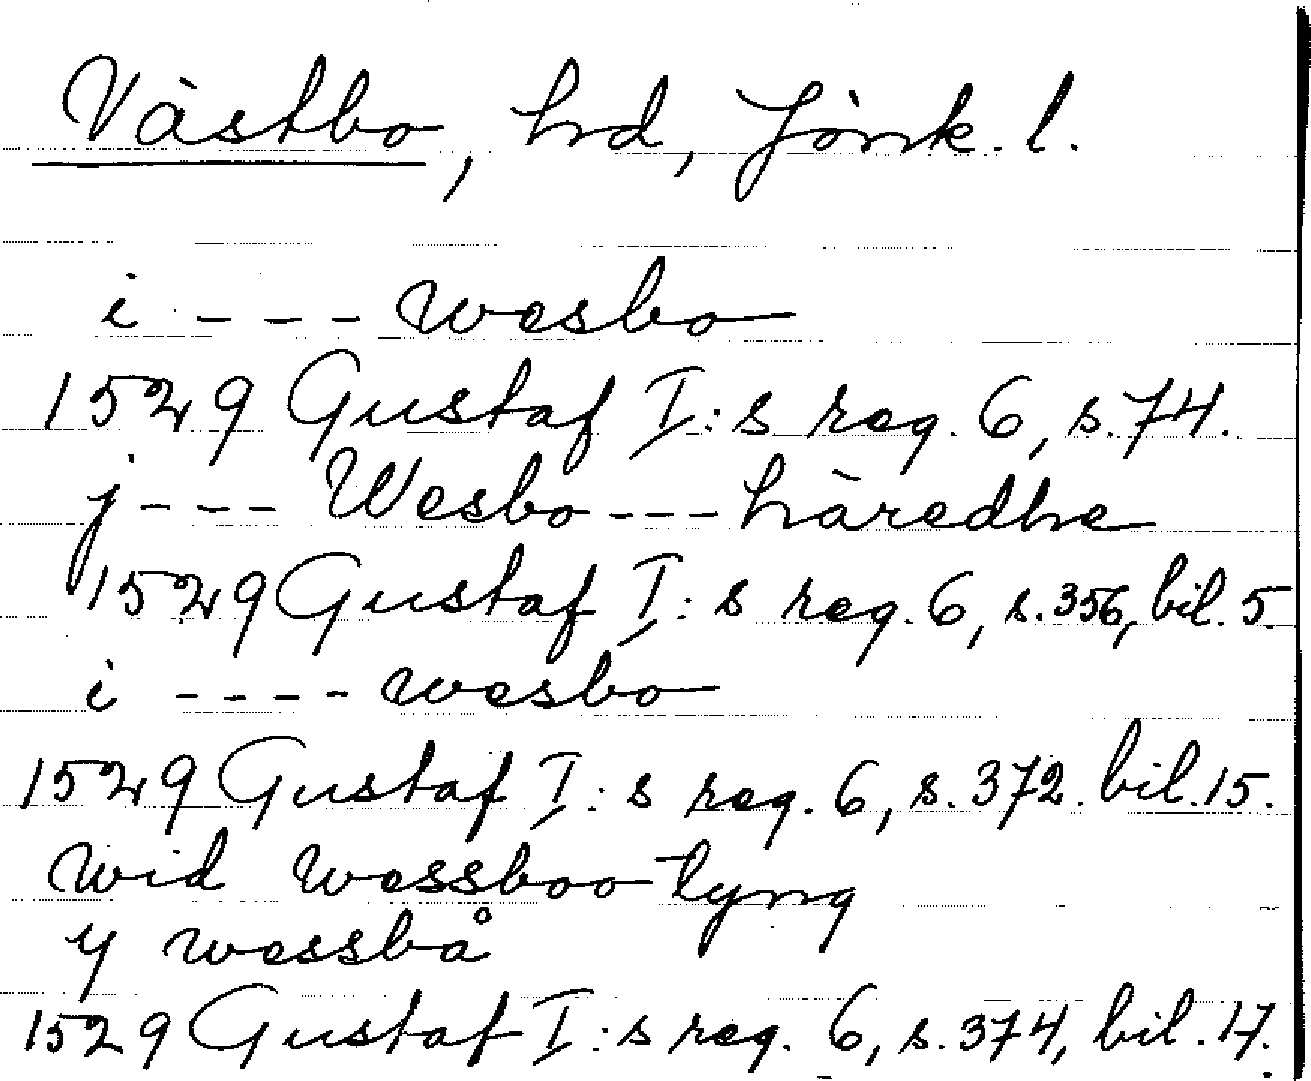 Västbo, hd, Jönk. l.
i - - - - wesbo
1529 Gustaf I:s reg. 6, s. 74.
j - - - Wesbo - - - häredhe
1529 Gustaf I:s reg. 6, s. 356, bil. 5.
i - - - - wesbo
1529 Gustaf I:s reg. 6, s. 372. bil. 15.
wid wessboo tyng
y wessbå
1529 Gustaf I:s reg. 6, s. 374, bil. 17.